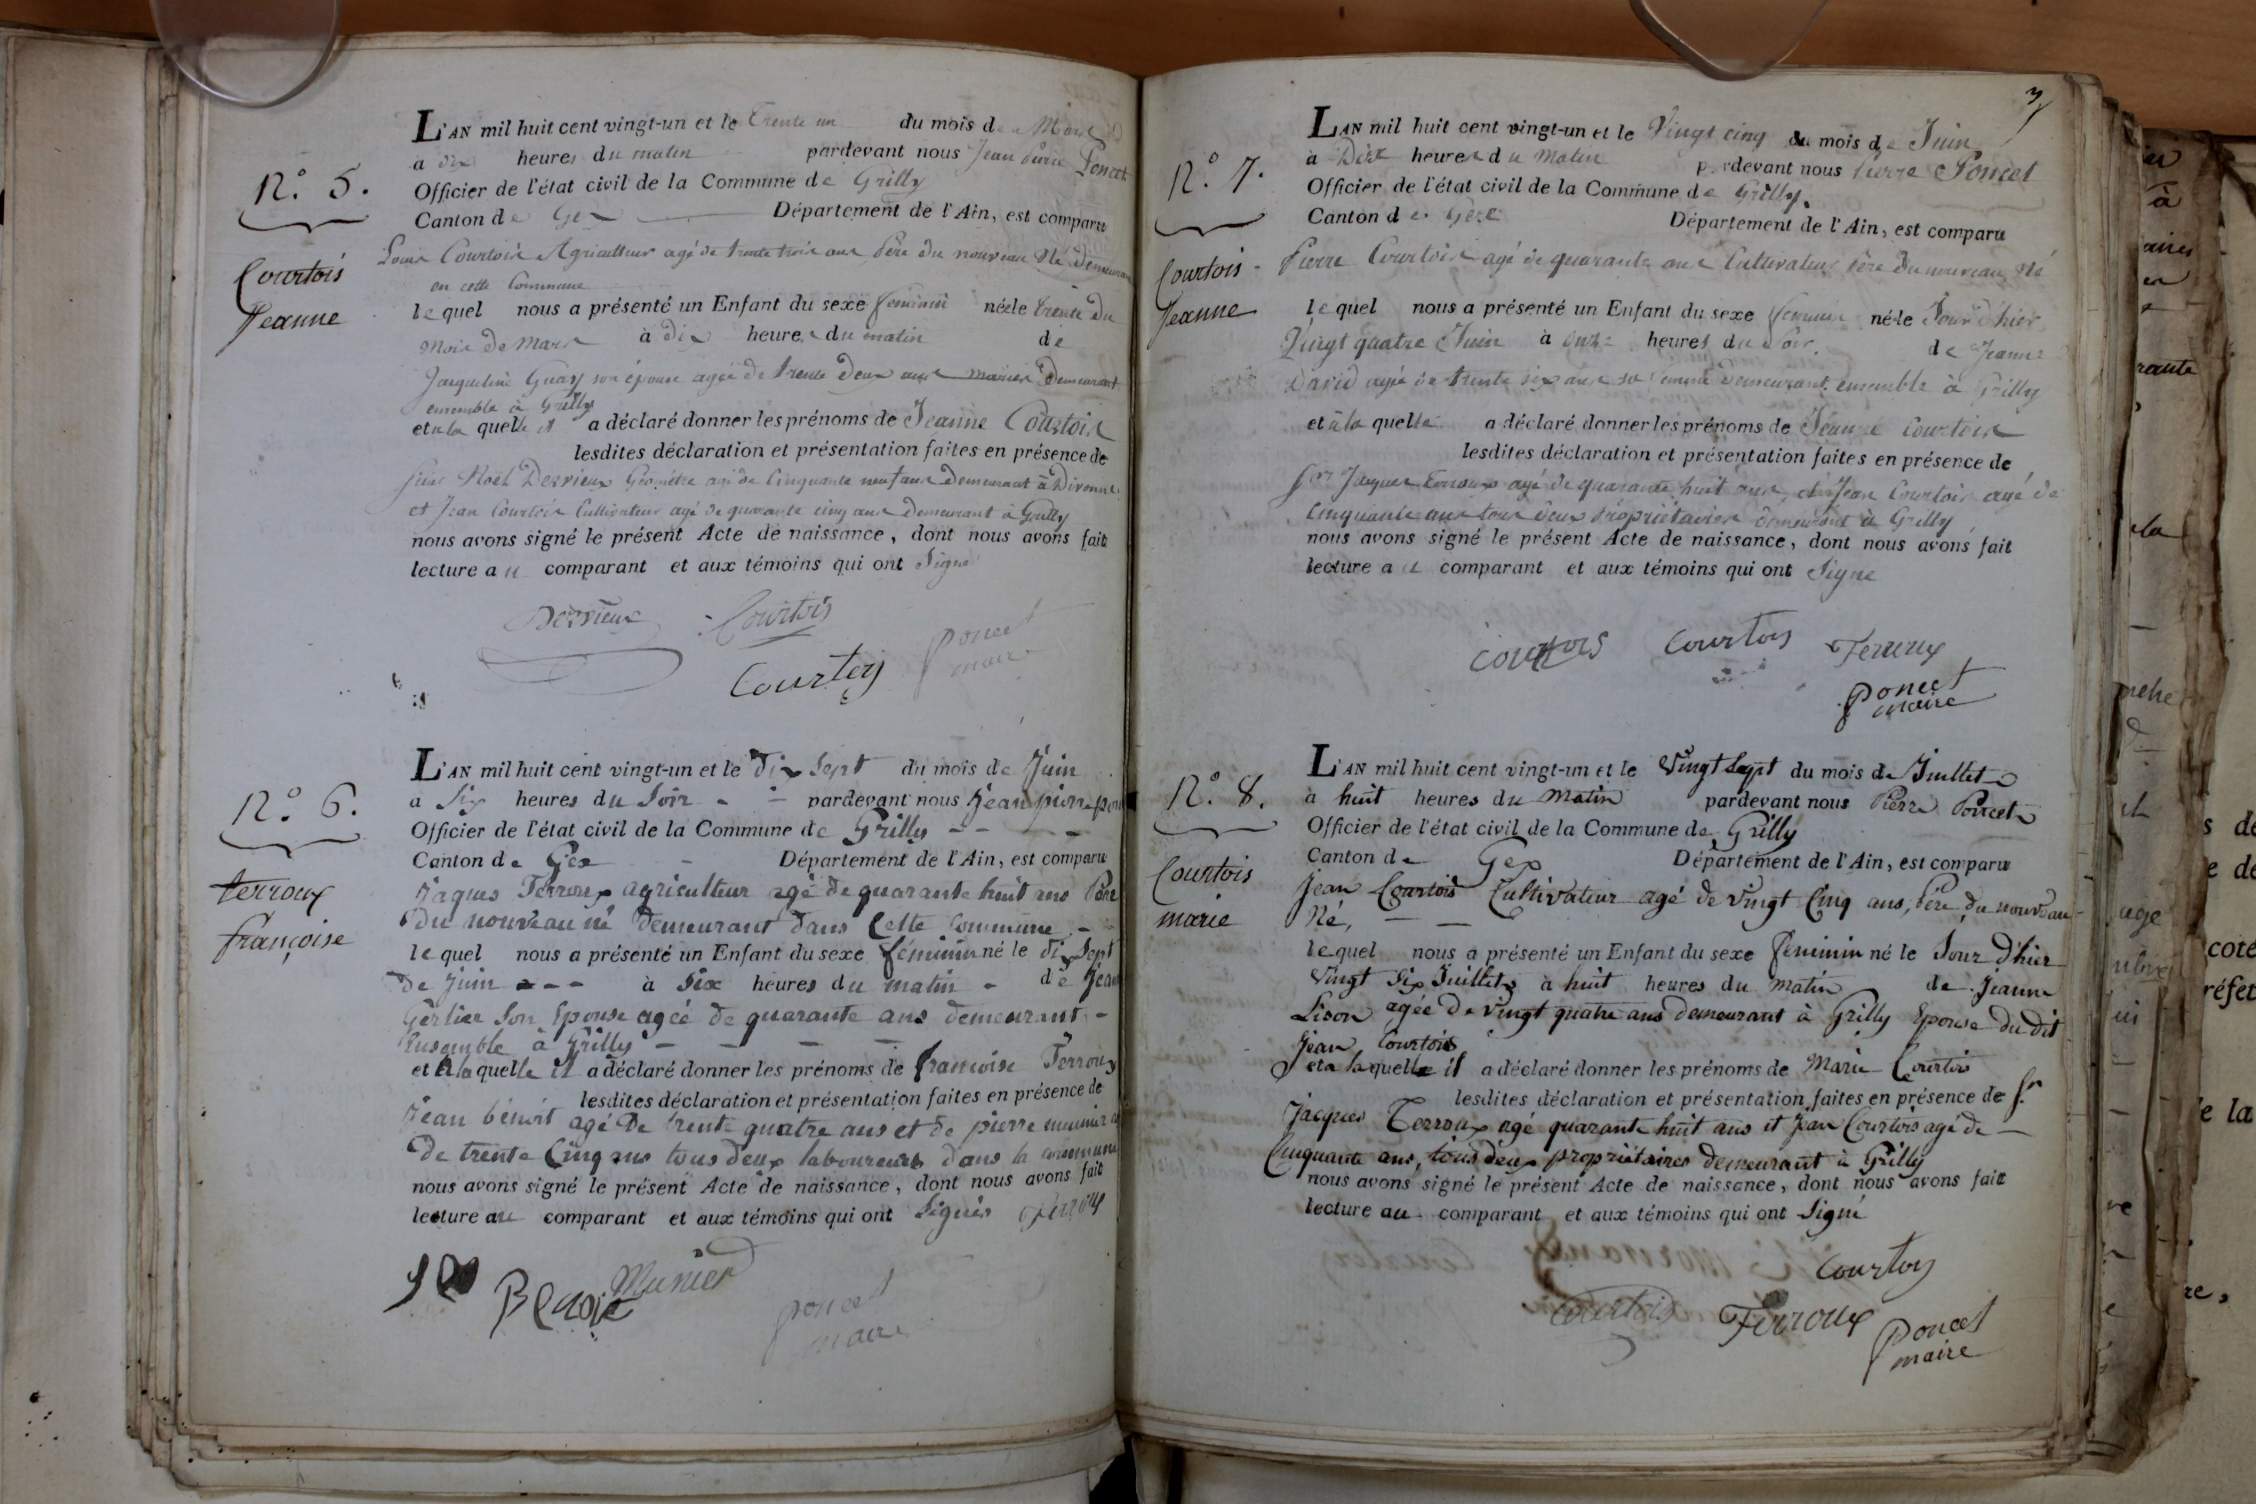 N.° 5.
Courtois
Jeanne
L'AN mil huit cent vingt-un et le Trente un du mois de Mars
a dix heures du matin pardevant nous Jean Pierre Poncet
Officier de l'état civil de la Commune de Grilly
Canton de Gex Département de l'Ain, est comparu
Louis Courtois Agriculteur agé de trente trois ans Père du nouveau Né demeurant
en cette Commune
lequel nous a présenté un Enfant du sexe feminin né le trente du
mois de Mars à dix heures du matin de
Jacqueline son épouse agée de trente deux ans mariés Demeurant
ensemble à Grilly
et à la quelle il a déclaré donner les prénoms de Jeanne Courtois
lesdites déclaration et présentation faites en présence de
Noël Dervieux Géomètre agé de Cinquante neuf ans Demeurant à Divonne
et Jean Courtois Cultivateur agé de quarante cinq ans Demeurant à Grilly
nous avons signé le présent Acte de naissance, dont nous avons fait
lecture au comparant et aux témoins qui ont Signé
Dervieux Courtois
Courtois Poncet
maire
N.° 6.
terroux
françoise
L'AN mil huit cent vingt-un et le dix sept du mois de Juin
a Six heures du Soir pardevant nous Jean pierre
Officier de l'état civil de la Commune de Grilly
Canton de Gex Département de l'Ain, est comparu
Jaques Terroux agriculteur agé de quarante huit ans Père
du nouveau né demeurant dans Cette Commune
lequel nous a présenté un Enfant du sexe féminin né le dix Sept
de Juin à Six heures du matin de
Gerlier son Epouse agéé de quarante ans demeurant
Ensemble à Grilly
et à la quelle il a déclaré donner les prénoms de françoise Terroux
lesdites déclaration et présentation faites en présence de
Jean benoit agé De trente quatre ans et de pierre munier
de trente Cinq ans tous deux laboureurs dans la commune
nous avons signé le présent Acte de naissance, dont nous avons fait
lecture au comparant et aux témoins qui ont Signés Terroux
Benoit Munier
poncet
maire
3
N.° 7.
Courtois
Jeanne
L'AN mil huit cent vingt-un et le Vingt cinq du mois de Juin
à Dix heures du Matin pardevant nous Pierre Poncet
Officier de l'état civil de la Commune de Grilly
Canton de Gex Département de l'Ain, est comparu
Pierre Courtois agé de quarante ans Cultivateur Père du nouveau Né
lequel nous a présenté un Enfant du sexe féminin né le Jour d'hier
Vingt quatre Juin à onze heures du Soir de Jeanne
David agée de trente six ans sa femme Demeurant ensemble à Grilly
et à la quelle a déclaré donner les prénoms de Jeanne Courtois
lesdites déclaration et présentation faites en présence de
Sr Jacques Terroux agé de quarante huit ans, et Jean Courtois agé de
Cinquante ans tous Deux Propriétaires demeurant à Grilly
nous avons signé le présent Acte de naissance, dont nous avons fait
lecture au comparant et aux témoins qui ont Signé
Courtois Courtois Terroux
poncet
maire
N.° 8.
Courtois
marie
L'AN mil huit cent vingt-un et le Vingt Sept du mois de Juillet
à huit heures du Matin pardevant nous Pierre Poncet
Officier de l'état civil de la Commune de Grilly
Canton de Gex Département de l'Ain, est comparu
Jean Courtois Cultivateur agé de Vingt Cinq ans, Père du nouveau
Né,
lequel nous a présenté un Enfant du sexe féminin né le Jour d'hier
Vingt Six Juillet à huit heures du Matin de Jeanne
Lison agée de Vingt quatre ans demeurant à Grilly Epouse du dit
Jean Courtois
et à la quelle il a déclaré donner les prénoms de Marie Courtois
lesdites déclaration et présentation faites en présence de Sr
Jacques Terroux agé quarante huit ans et Jean Courtois agé de
Cinquante ans, tous deux propriétaires demeurant à Grilly
nous avons signé le présent Acte de naissance, dont nous avons fait
lecture au comparant et aux témoins qui ont Signé
Courtois
Courtois Terroux poncet
maire